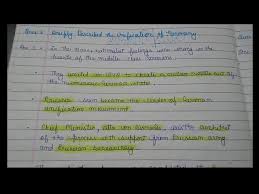 Ques:- Briefly Described the Unification of Germany.
Ans:- In the 1800s, nationalist feelings were strong in the
hearts of the middle class Germans.
They united in 1848 to create a nation state out of
the numerous German states.
Prussia soon became the leader of German
unification movement.
Chief Minister, Otto von Bismarck, architect
of the process with support from Prussian army
and Prussian bureaucracy.